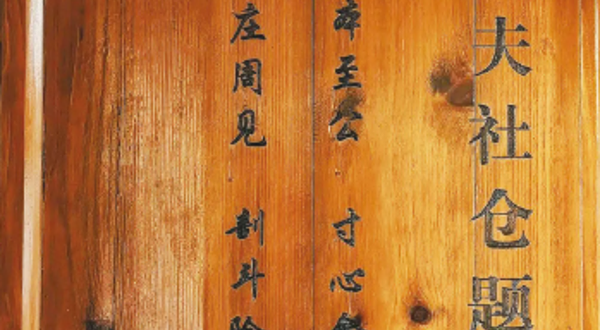 夫社仓题
本至公 寸心贪
庄周见 剖斗除